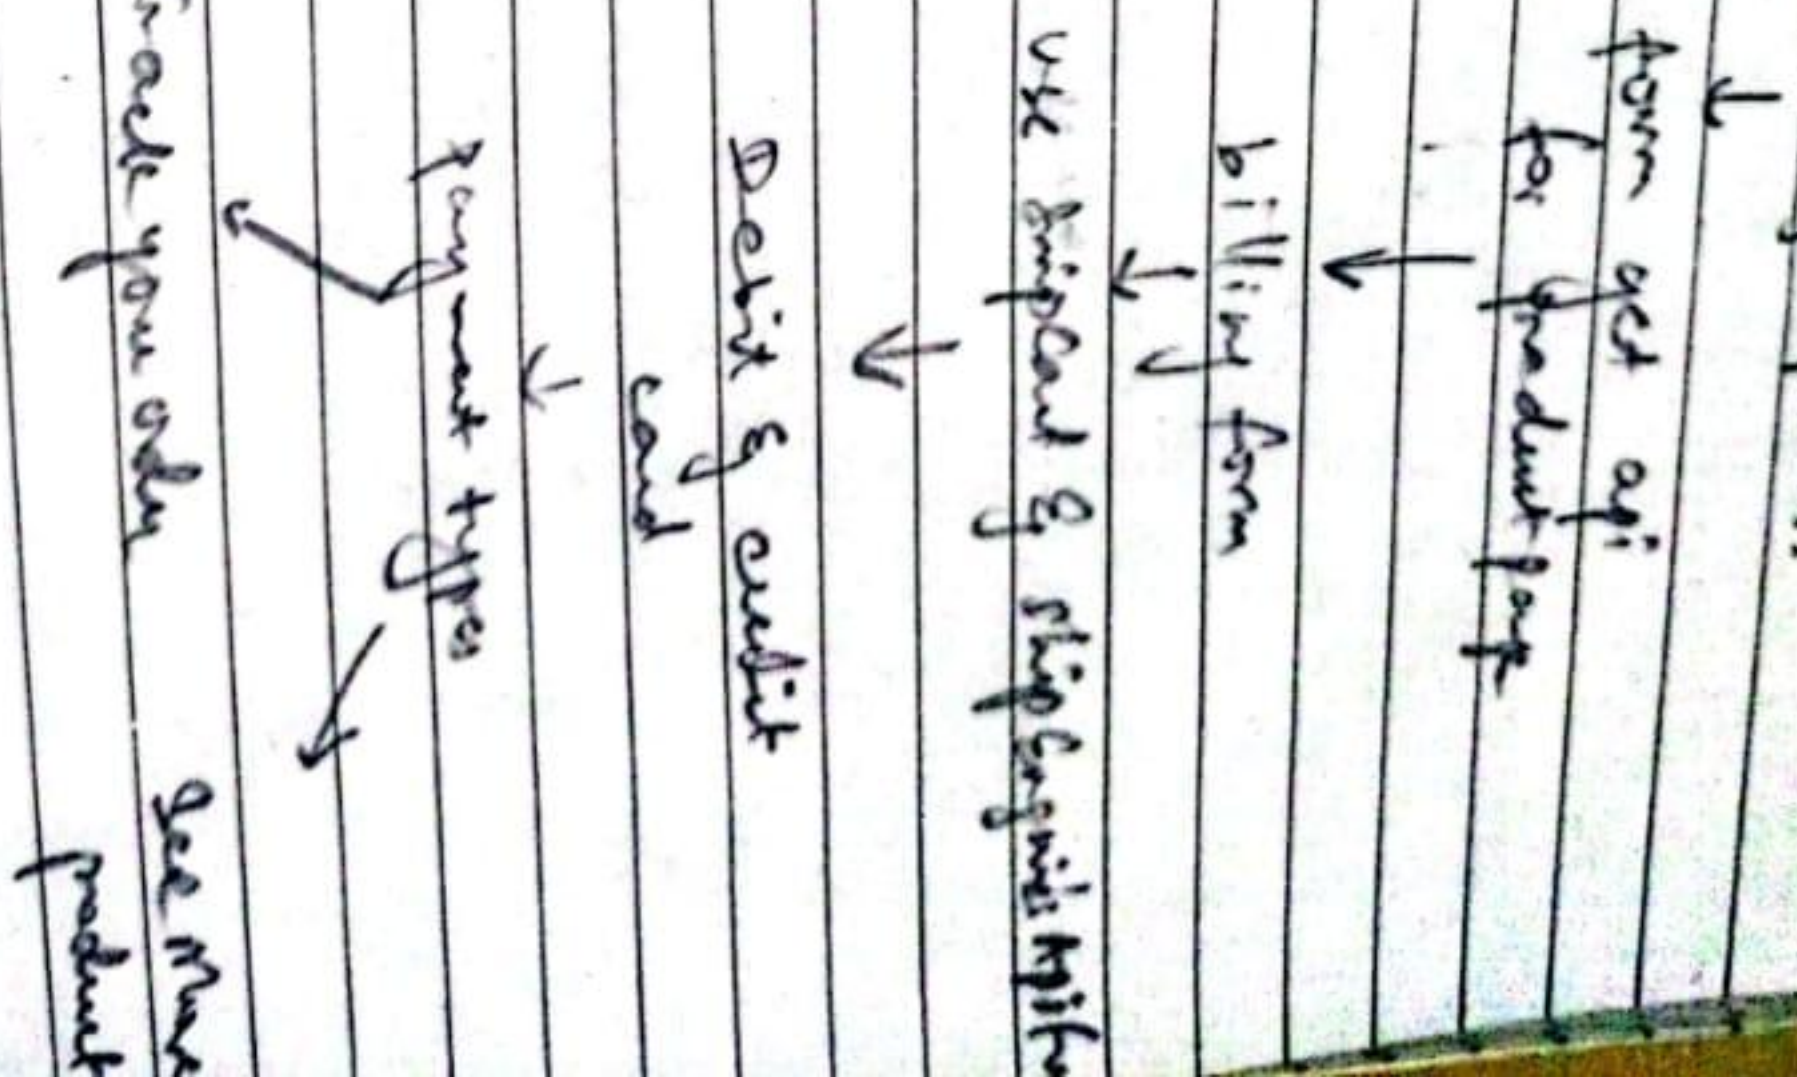 form get api
for product page
billing form
use snipcart & shipEngine's Api for
Debit & credit
card
Payment types
track you ordy
See More
product